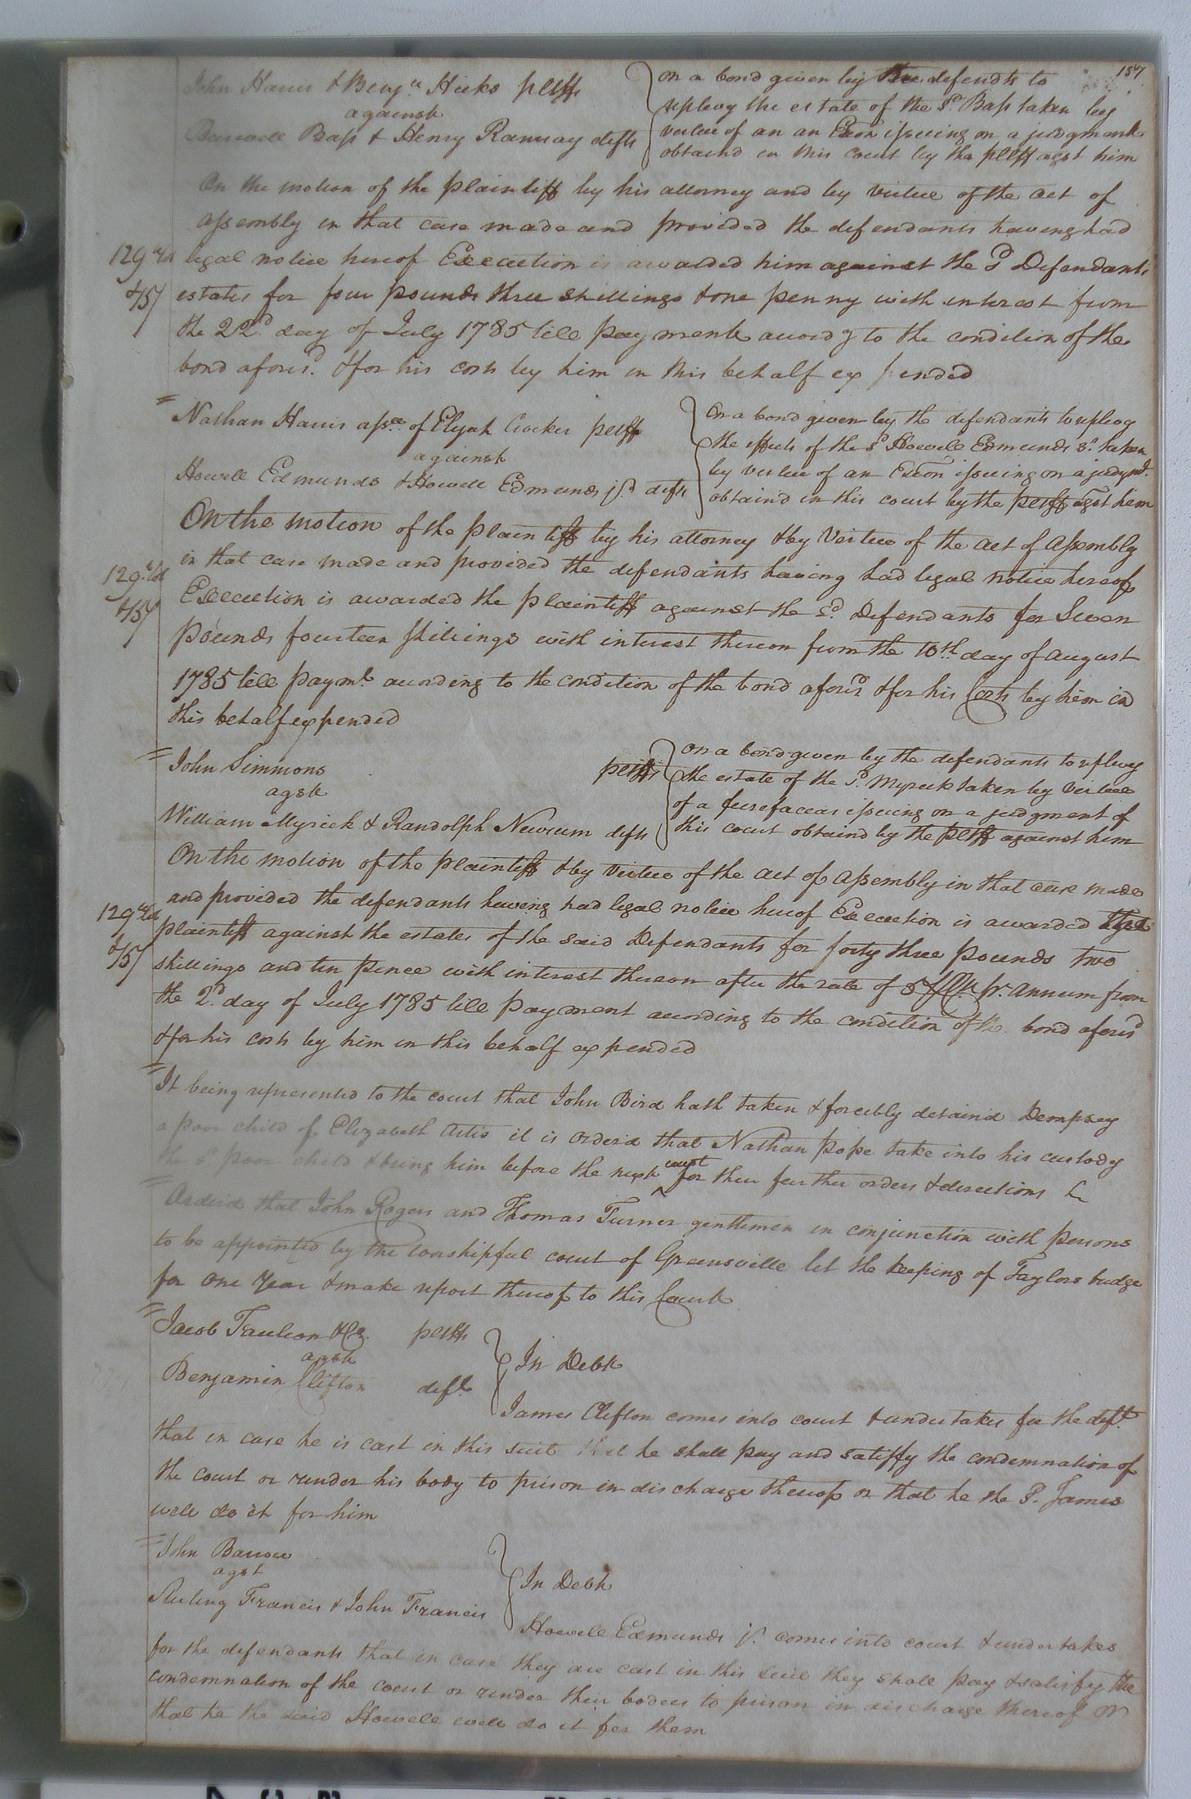 157
John Harris & Benj.n Hicks pltffs
against
Burwell Bass & Henry Ramsay defts
on a bond given by the defendts to
replevy the estate of the sd. Bass taken by
virtue of an an Exon issueing on a judgment
obtaind in this court by the pltff agst him
On the motion of the plaintiff by his attorney and by virtue of the act of
assembly in that case made and provided the defendants having had
legal notice hereof Execution is awarded him against the sd Defendants
estates for four pounds three shillings & one penny with interest from
the 22d day of July 1785 till payment accordg to the condition of the
bond aforesd. & for his costs by him in this behalf expended
129
& 157
Nathan Harris assee of Elijah Crocker pltff
against
Howell Edmunds & Howell Edmunds jr. defts
on a bond given by the defendants to replevy
the effects of the sd Howell Edmunds sr. taken
by virtue of an Exon issueing on a judgmt.
obtaind in this court by the pltff agst them
On the motion of the plaintiff by his attorney & by Virtue of the act of Assembly
in that case made and provided the defendants having had legal notice hereof
Execution is awarded the plaintiff against the sd. Defendants for Seven
pounds fourteen shillings with interest thereon from the 10th day of August
1785 till paymt. according to the condition of the bond aforesd & for his Costs by him in
this behalf expended
129
& 157
John Simmons pltff
agst
William Myrick & Randolph Newsum defts
on a bond given by the defendants to replevy
the estate of the sd. Myrick taken by virtue
of a fierefacias issueing on a judgment of
this court obtaind by the pltff against him
On the motion of the plaintiff & by virtue of the act of assembly in that case made
and provided the defendants having had legal notice hereof Execution is awarded the
plaintiff against the estates of the said Defendants for forty three pounds two
shillings and ten pence with interest thereon after the rate of 5 pr. annum from
the 2d. day of July 1785 till payment according to the condition of the bond aforesd
& for his costs by him in this behalf expended
129
& 157
It being represented to the court that John Bird hath taken & forcibly detain'd Dempsey
a poor child of Elizabeth Artis it is orderd that Nathan Pope take into his custody
the sd poor child & bring him before the next court for their further orders & directions
Orderd that John Rogers and Thomas Turner gentlemen in conjunction with persons
to be appointed by the worshipful court of Greensville let the keeping of Taylors bridge
for one year & make report thereof to this Court
Jacob Faulcon & Co. pltffs
agst
Benjamin Clifton deft
In Debt
James Clifton comes into court & undertakes for the deft.
that in case he is cast in this suit that he shall pay and satisfy the condemnation of
the court or render his body to prison in discharge thereof or that he the sd. James
will do it for him
John Barrow
agst
Sterling Francis & John Francis
In Debt
Howell Edmunds jr. comes into court & undertakes
for the defendants that in case they are cast in this suit they shall pay & satisfy the
condemnation of the court or render their bodies to prison in discharge thereof or
that he the said Howell will do it for them